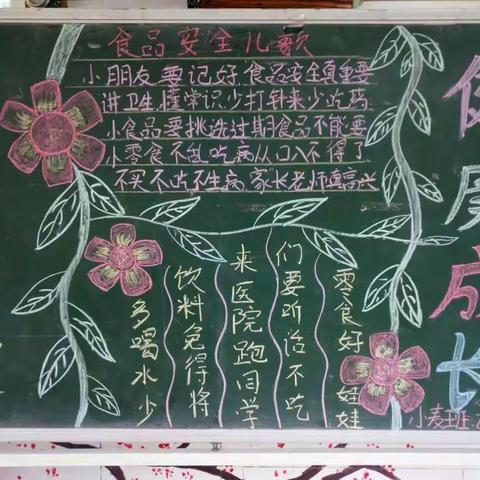 食品安全儿歌
小朋友要记好食品安全真重要
讲卫生懂常识少打针来少吃药
小食品要挑选过期食品不能要
小零食不乱吃病从口入不得了
不买不吃不生病,家长老师真高兴
多喝水少
饮料免得将
来医院跑同学
们要听话不吃
零食好娃娃
健康成长
小麦班